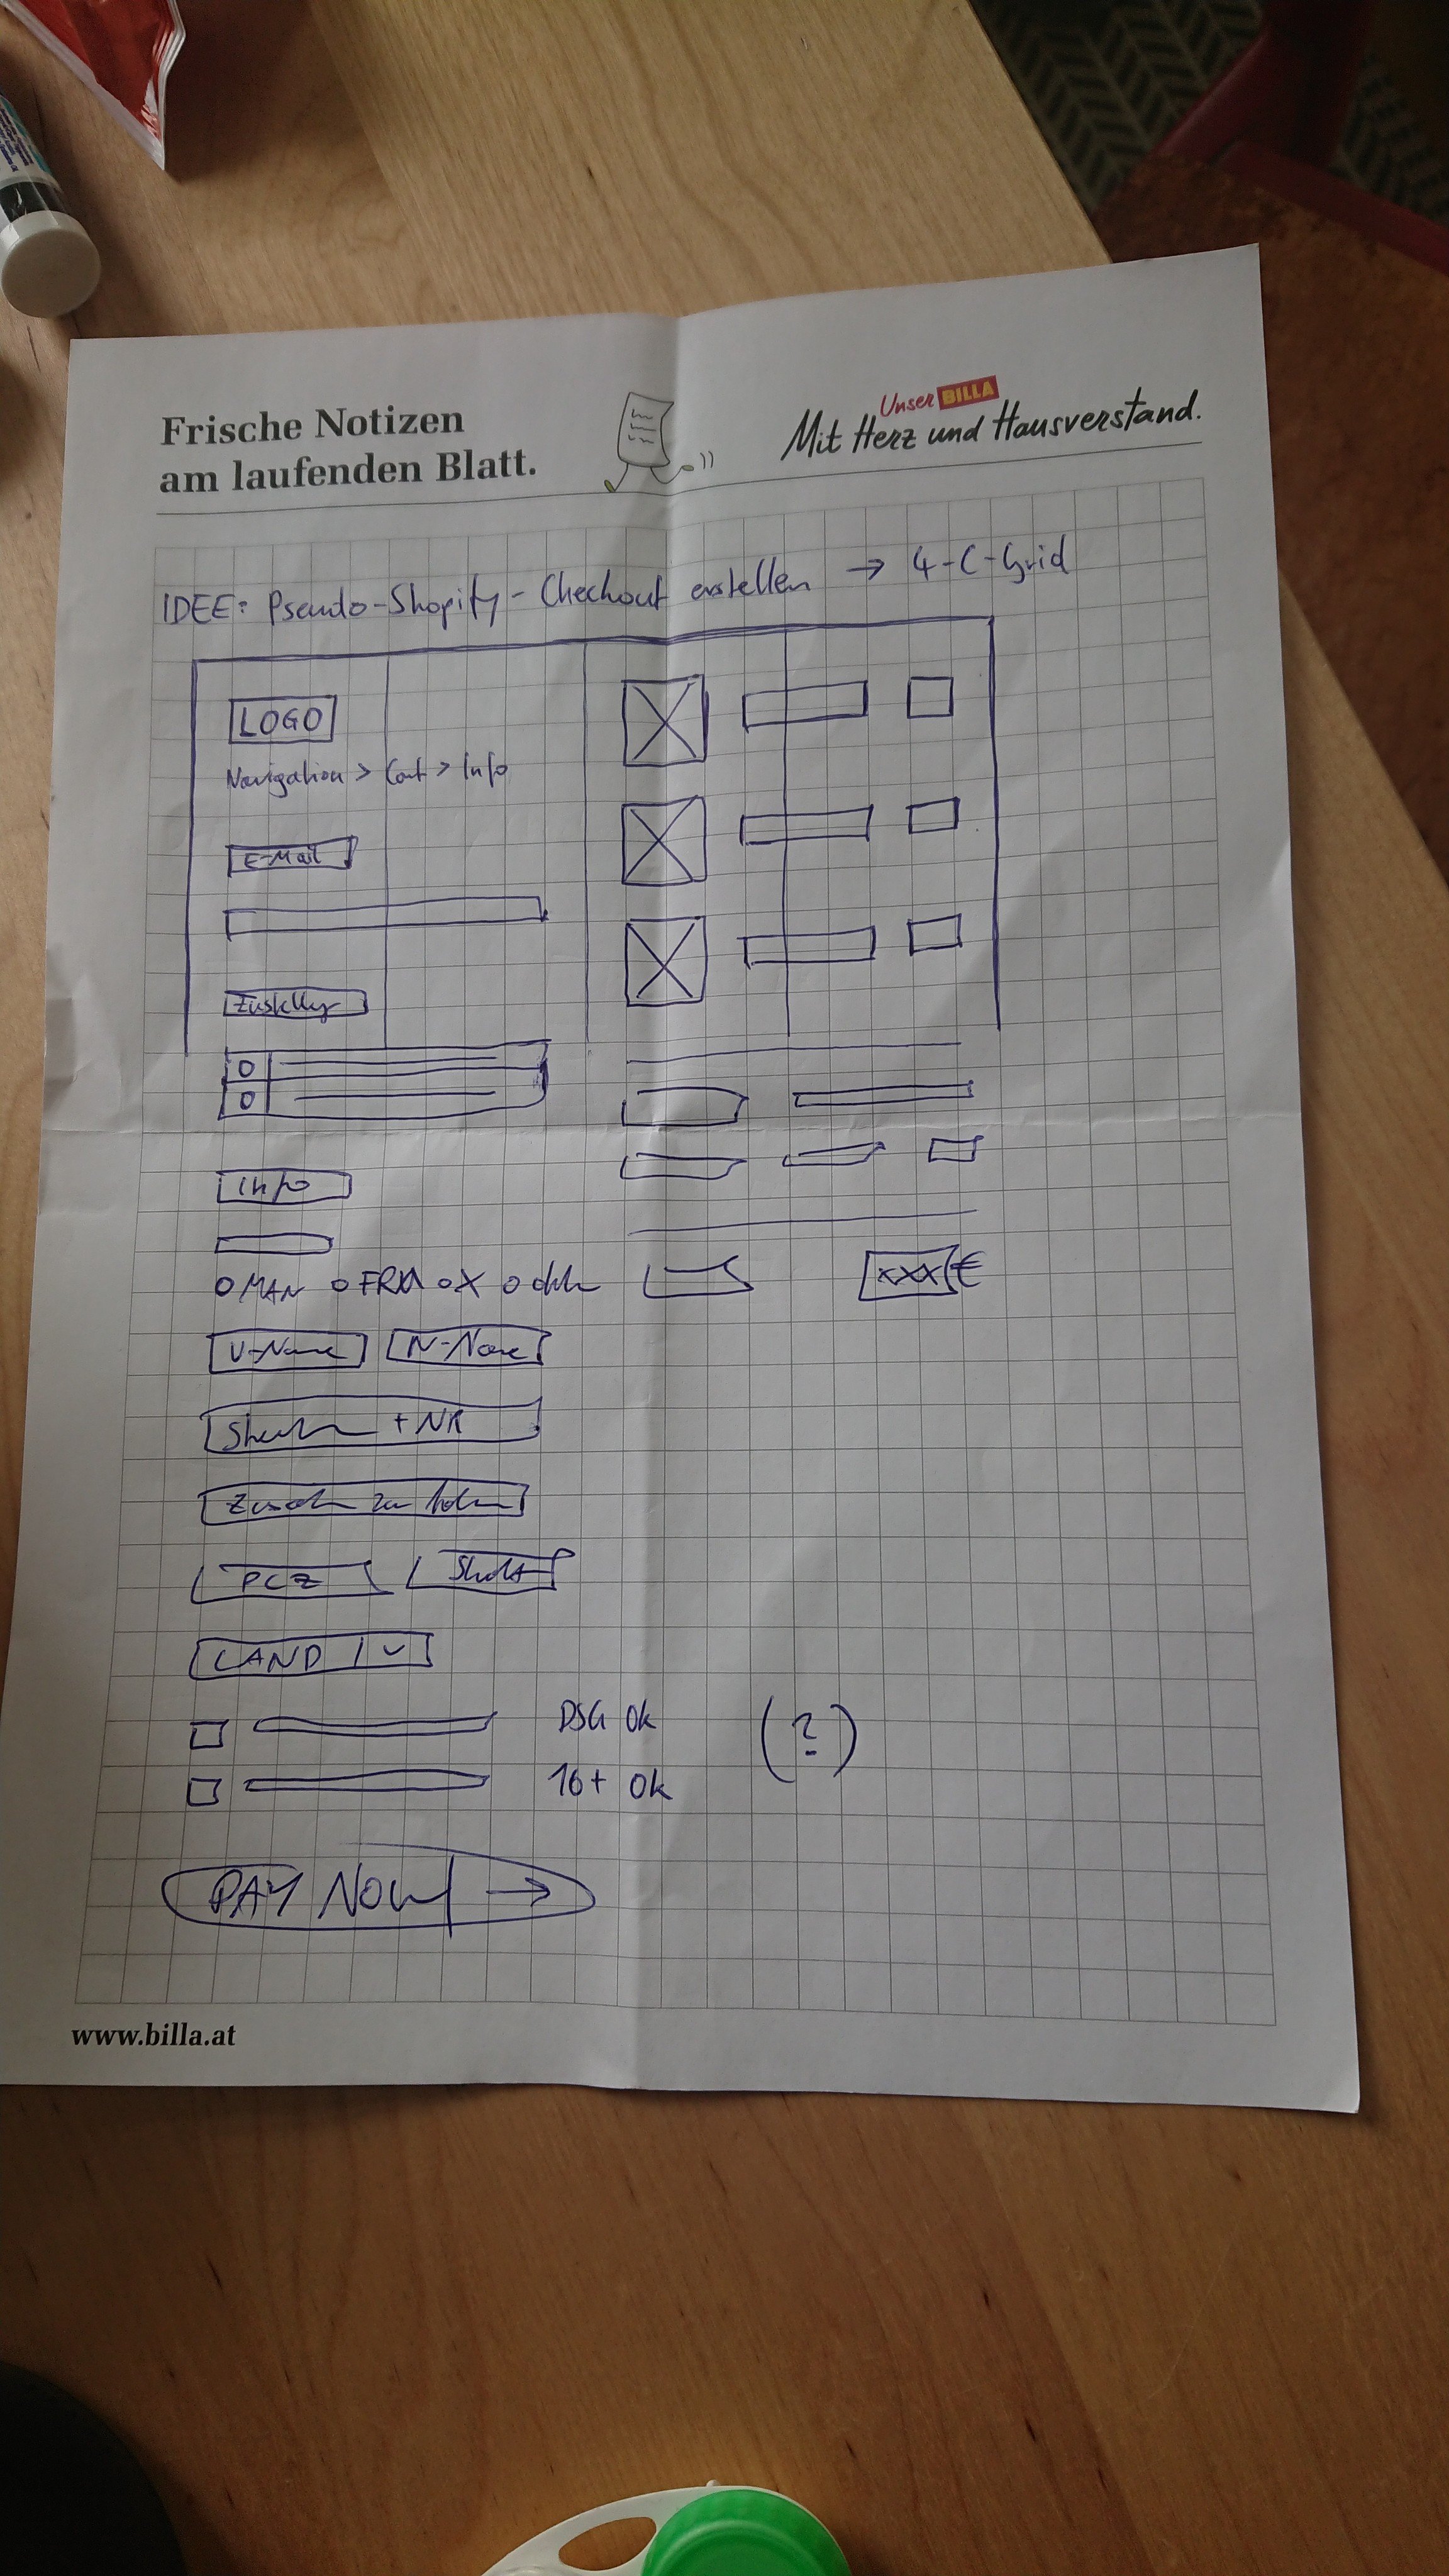 Frische Notizen
am laufenden Blatt.
Unser BILLA
Mit Herz und Hausverstand.
IDEE: Pseudo-Shopify-Checkout erstellen → 4-C-Grid
LOGO
Navigation > Cart > Info
E-Mail
Zustellung
Info
O MAN O FRAU O X O
xxx €
V-Name N-Name
+ NR
PLZ Stadt
LAND
DSG Ok
(?)
16+ Ok
PAY NOW →
www.billa.at